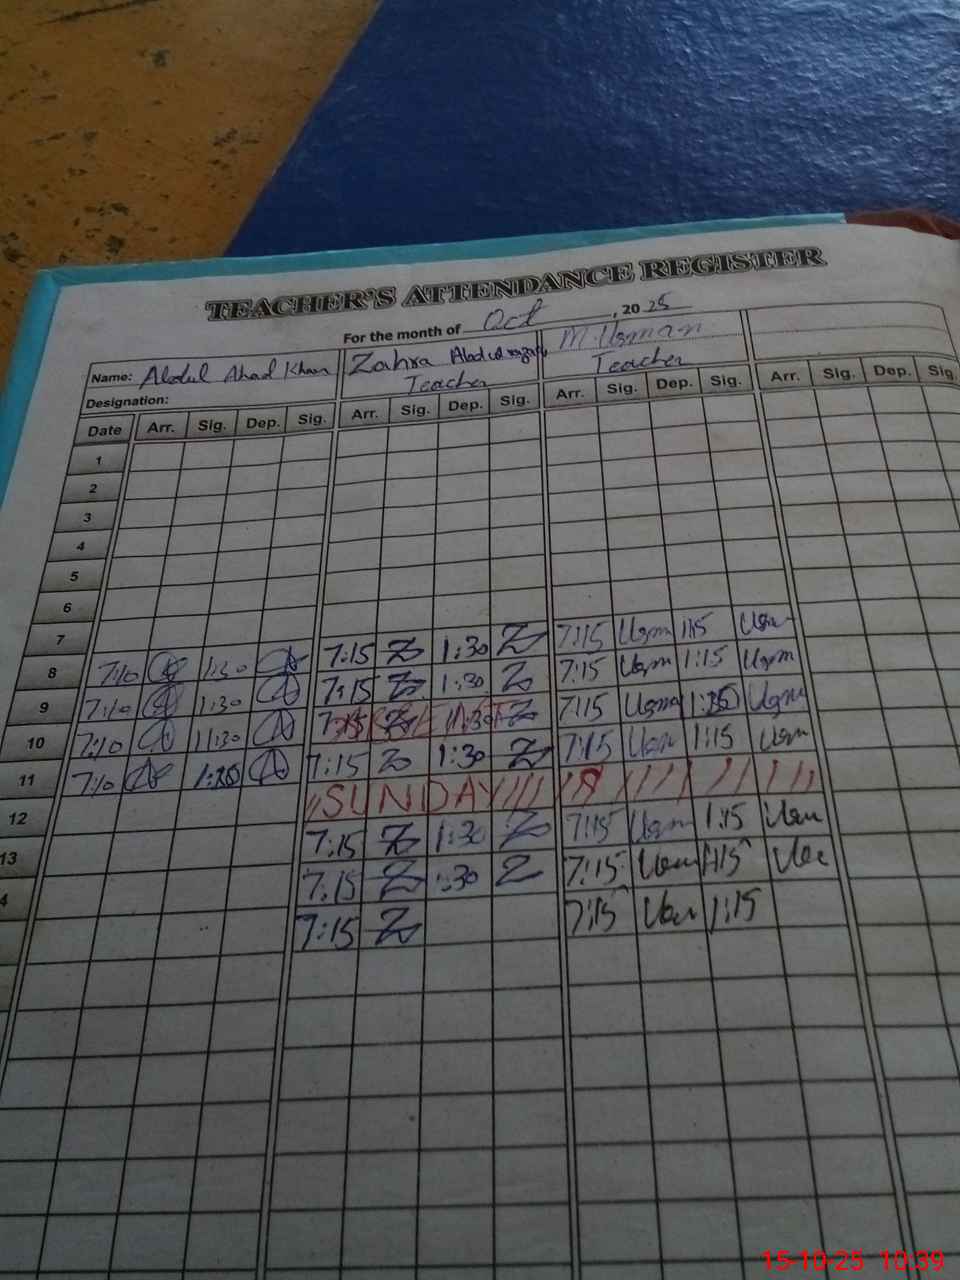 TEACHER'S ATTENDANCE REGISTER
For the month of Oct, 2025
Name: Abdul Ahad Khan Zahra Abdulrazaq M. Usman
Designation: Teacher Teacher
Date Arr. Sig. Dep. Sig. Arr. Sig. Dep. Sig. Arr. Sig. Dep. Sig. Arr. Sig. Dep. Sig.
1
2
3
4
5
6
7 7:15 Z 1:30 Z 7:15 Usm 1:15 Usm
8 7:10 A 1:30 A 7:15 Z 1:30 Z 7:15 Usm 1:15 Usm
9 7:10 A 1:30 A 7:15 Z 1:30 Z 7:15 Usm Usm
10 7:10 A 11:30 A 7:15 Z 1:30 Z 7:15 Usm 1:15 Usm
11 7:10 A A SUNDAY
12 7:15 Z 1:30 Z 7:15 Usm 1:15 Usm
13 7:15 Z :30 Z 7:15 1:15
4 7:15 Z 7:15 1:15
15-10-25 10:39